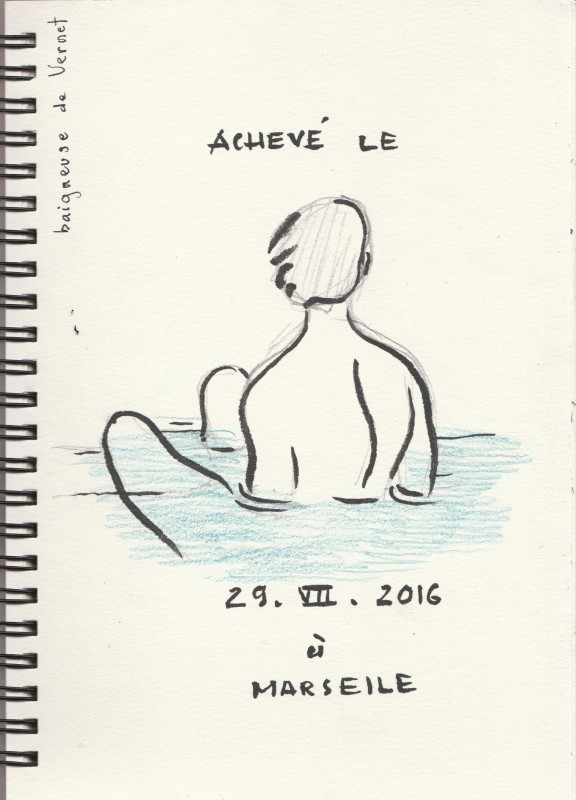 baigneuse de Vernet
ACHEVÉ LE
29. VII. 2016
à
MARSEILE